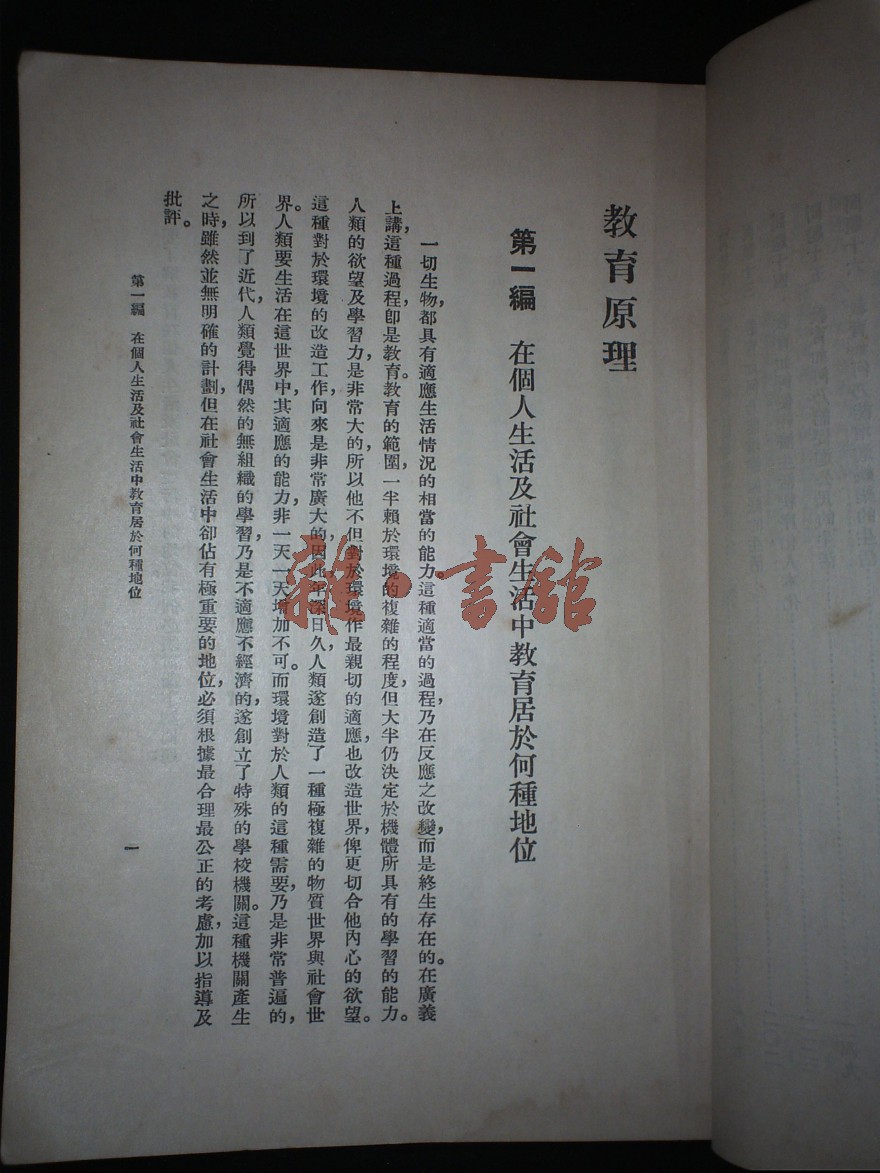 教育原理
第一編　在個人生活及社會生活中教育居於何種地位
一切生物，都具有適應生活情況的相當的能力。這種適當的過程，乃在反應之改變，而是終生存在的。在廣義
上講，這種過程，卽是教育。教育的範圍，一半賴於環境的複雜的程度，但大半仍決定於機體所具有的學習的能力。
人類的欲望及學習力，是非常大的，所以他不但對於環境作最親切的適應，也改造世界，俾更切合他內心的欲望。
這種對於環境的改造工作，向來是非常廣大的，因此年深日久，人類遂創造了一種極複雜的物質世界與社會世
界。人類要生活在這世界中，其適應的能力，非一天一天增加不可。而環境對於人類的這種需要，乃是非常普遍的，
所以到了近代，人類覺得偶然的無組織的學習，乃是不適應不經濟的，遂創立了特殊的學校機關。這種機關產生
之時，雖然並無明確的計劃，但在社會生活中卻佔有極重要的地位，必須根據最合理最公正的考慮，加以指導及
批評。
第一編　在個人生活及社會生活中教育居於何種地位
一
雜·書館